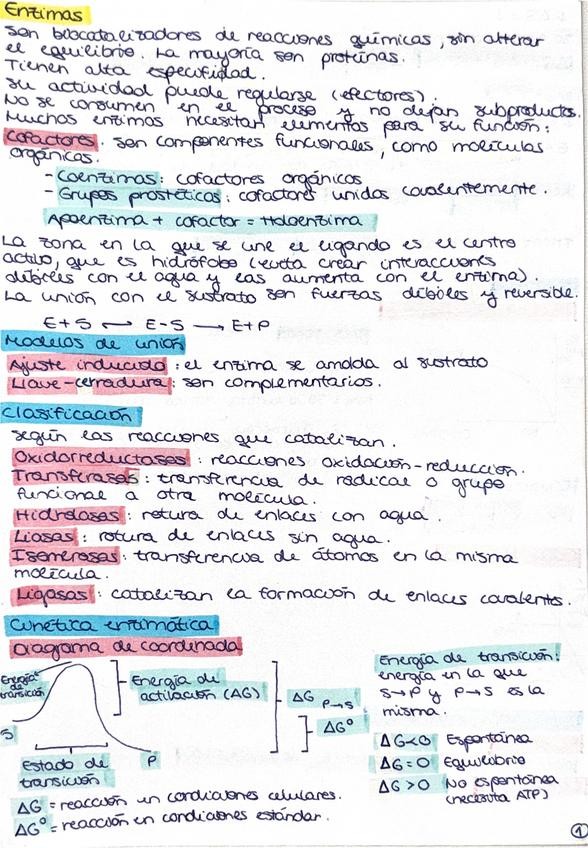 Enzimas
Son biocatalizadores de reacciones químicas, sin alterar
el equilibrio. La mayoría son proteínas.
Tienen alta especificidad.
Su actividad puede regularse (efectores).
No se consumen en el proceso y no dejan subproductos.
Muchos enzimas necesitan elementos para su función:
Cofactores. Son componentes funcionales, como moléculas
orgánicas.
- Coenzimas: cofactores orgánicos
- Grupos prostéticos: cofactores unidos covalentemente.
Apoenzima + cofactor = Holoenzima
La zona en la que se une el ligando es el centro
activo, que es hidrófobo (evita crear interacciones
débiles con el agua y las aumenta con el enzima).
La unión con el sustrato son fuerzas débiles y reversible.
E+S ⟷ E-S ⟶ E+P
Modelos de unión
Ajuste inducido: el enzima se amolda al sustrato
Llave-cerradura: son complementarios.
Clasificación
Según las reacciones que catalizan.
Oxidorreductasas: reacciones oxidación-reducción.
Transferasas: transferencia de radical o grupo
funcional a otra molécula.
Hidrolasas: rotura de enlaces con agua.
Liasas: rotura de enlaces sin agua.
Isomerasas: transferencia de átomos en la misma
molécula.
Ligasas: catalizan la formación de enlaces covalentes.
Cinética enzimática
Diagrama de coordenada
Energía de transición
Energía de
activación (ΔG)
ΔG P→S
ΔG°
S
P
Estado de
transición
ΔG = reacción en condiciones celulares.
ΔG° = reacción en condiciones estándar.
Energía de transición:
energía en la que
S→P y P→S es la
misma.
ΔG<0 Espontánea
ΔG=0 Equilibrio
ΔG>0 No espontánea
(necesita ATP)
1